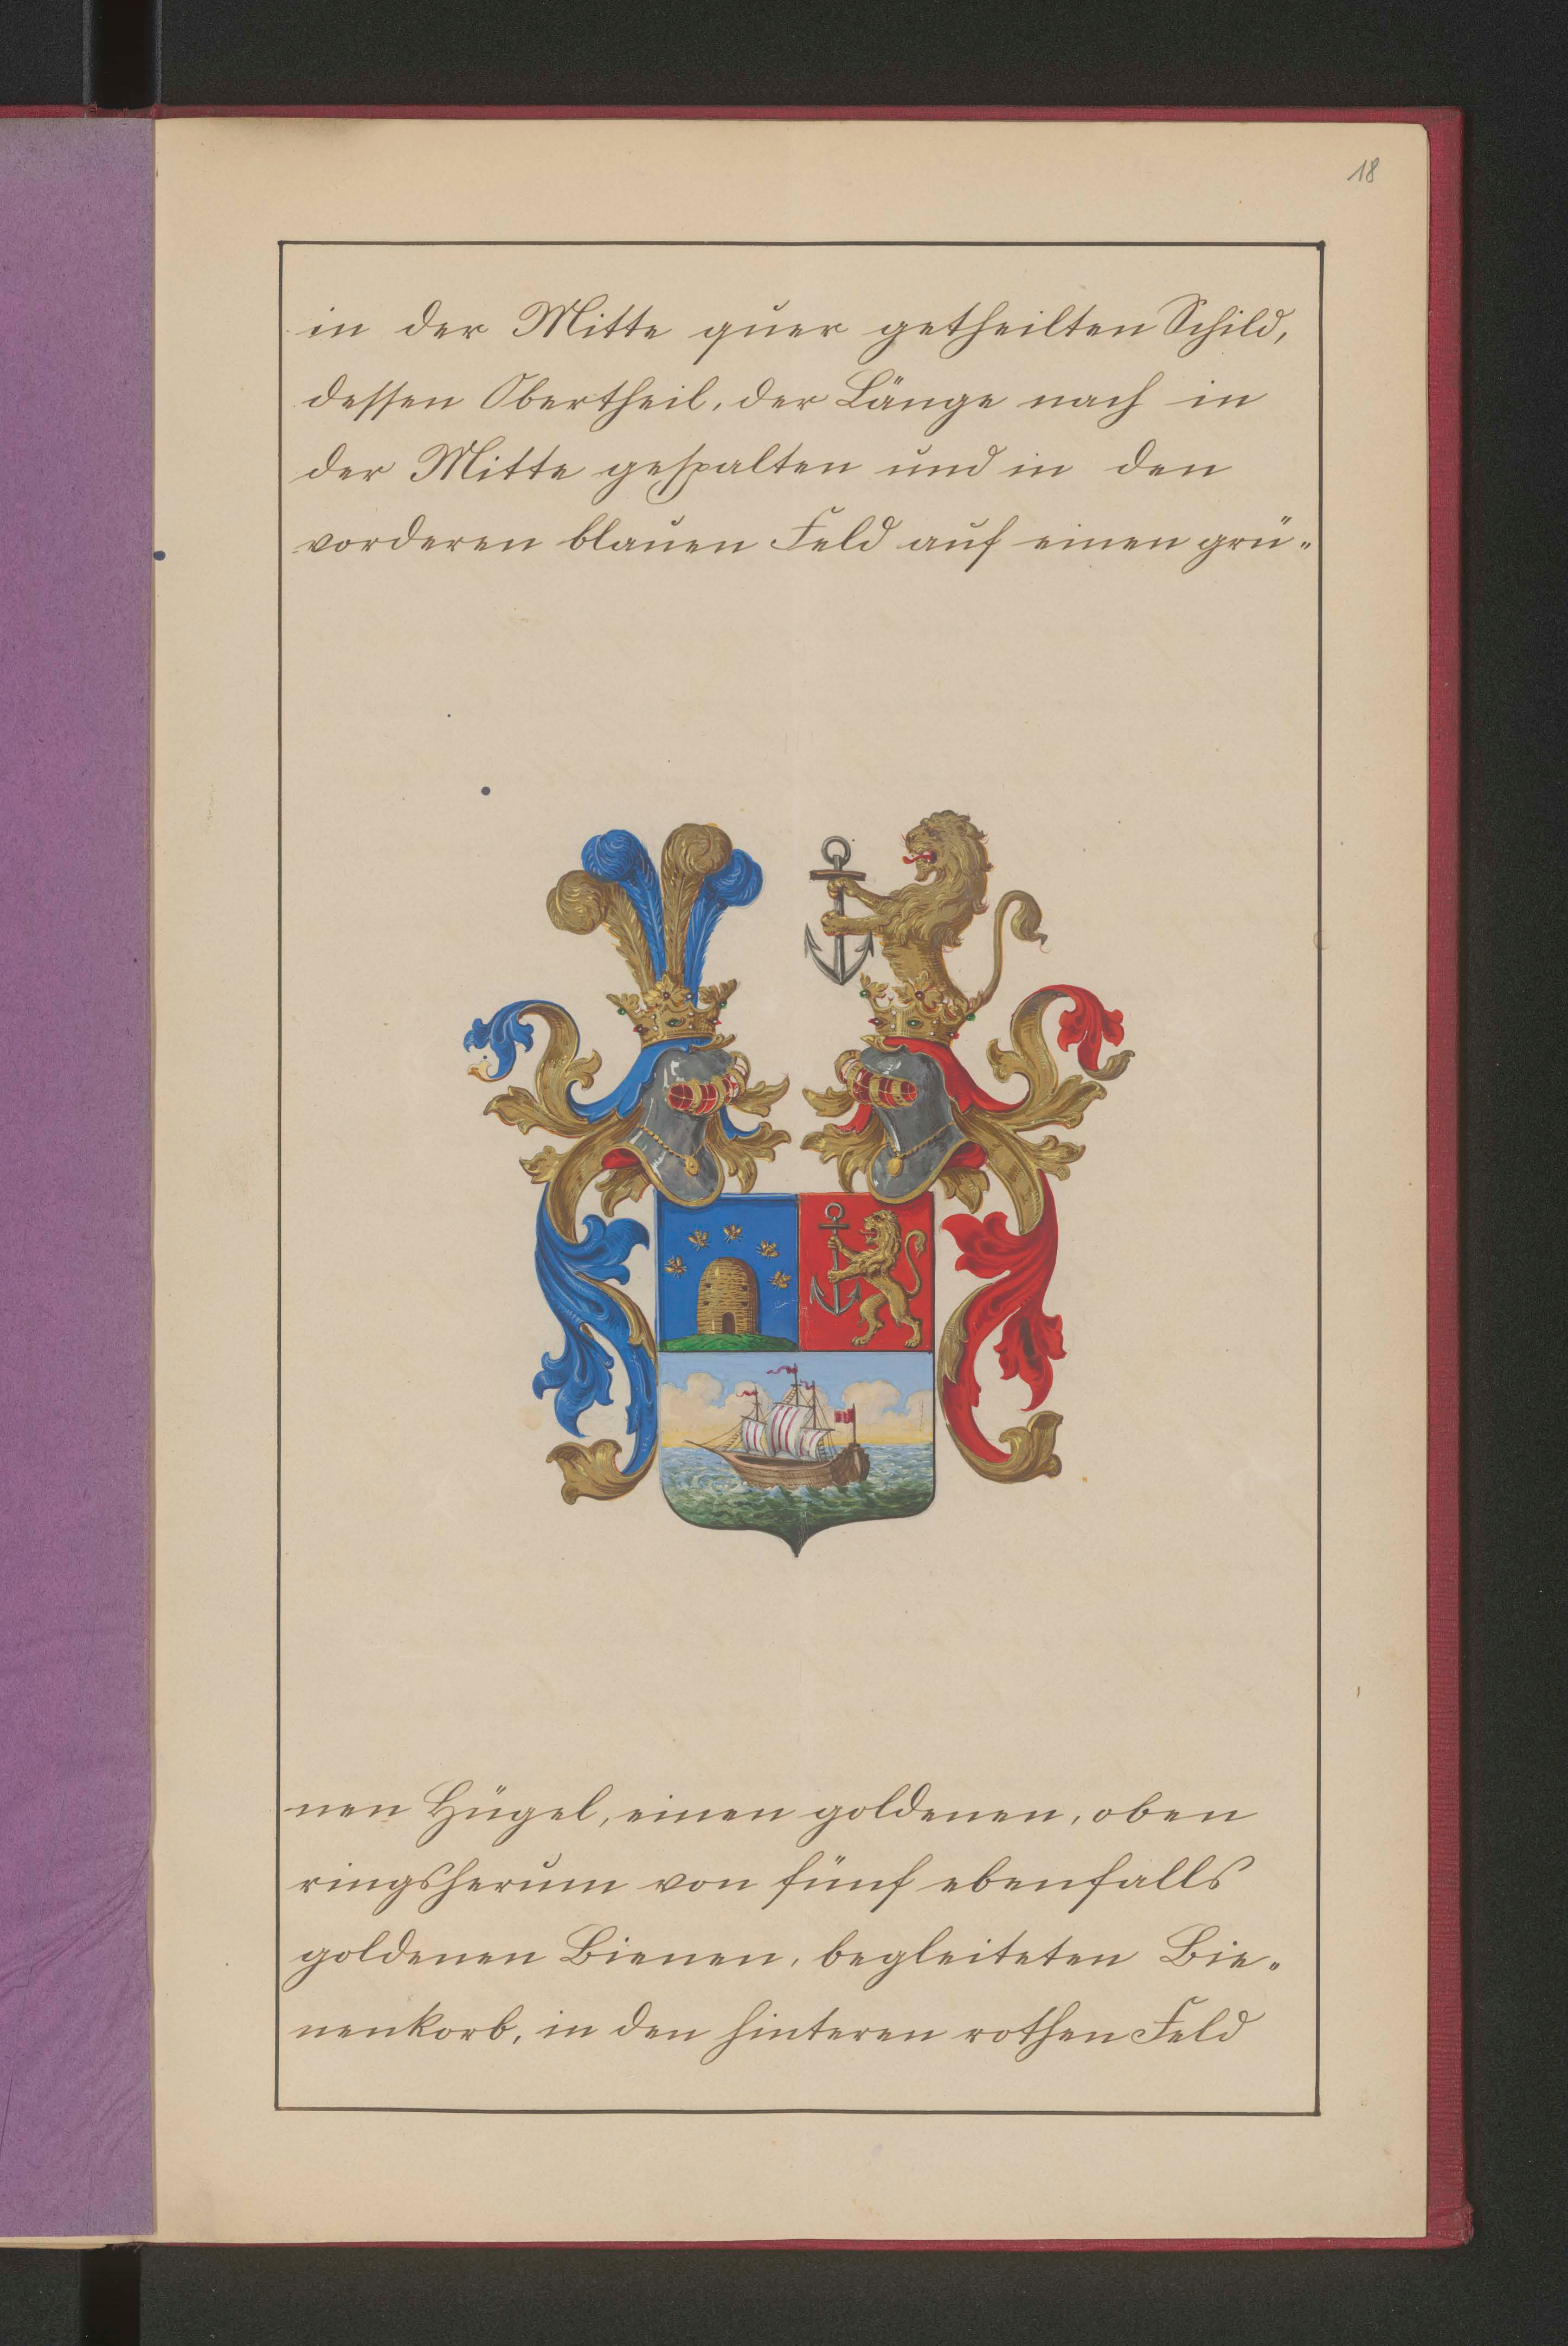 18
in der Mitte quer getheilten Schild,
dessen Obertheil, der Länge nach in
der Mitte gespalten und in den
vorderen blauen Feld auf einen grü„
nen Hügel, einen goldenen, oben
ringsherum von fünf ebenfalls
goldenen Bienen, begleiteten Bie„
nenkorb, in den hinteren rothen Feld